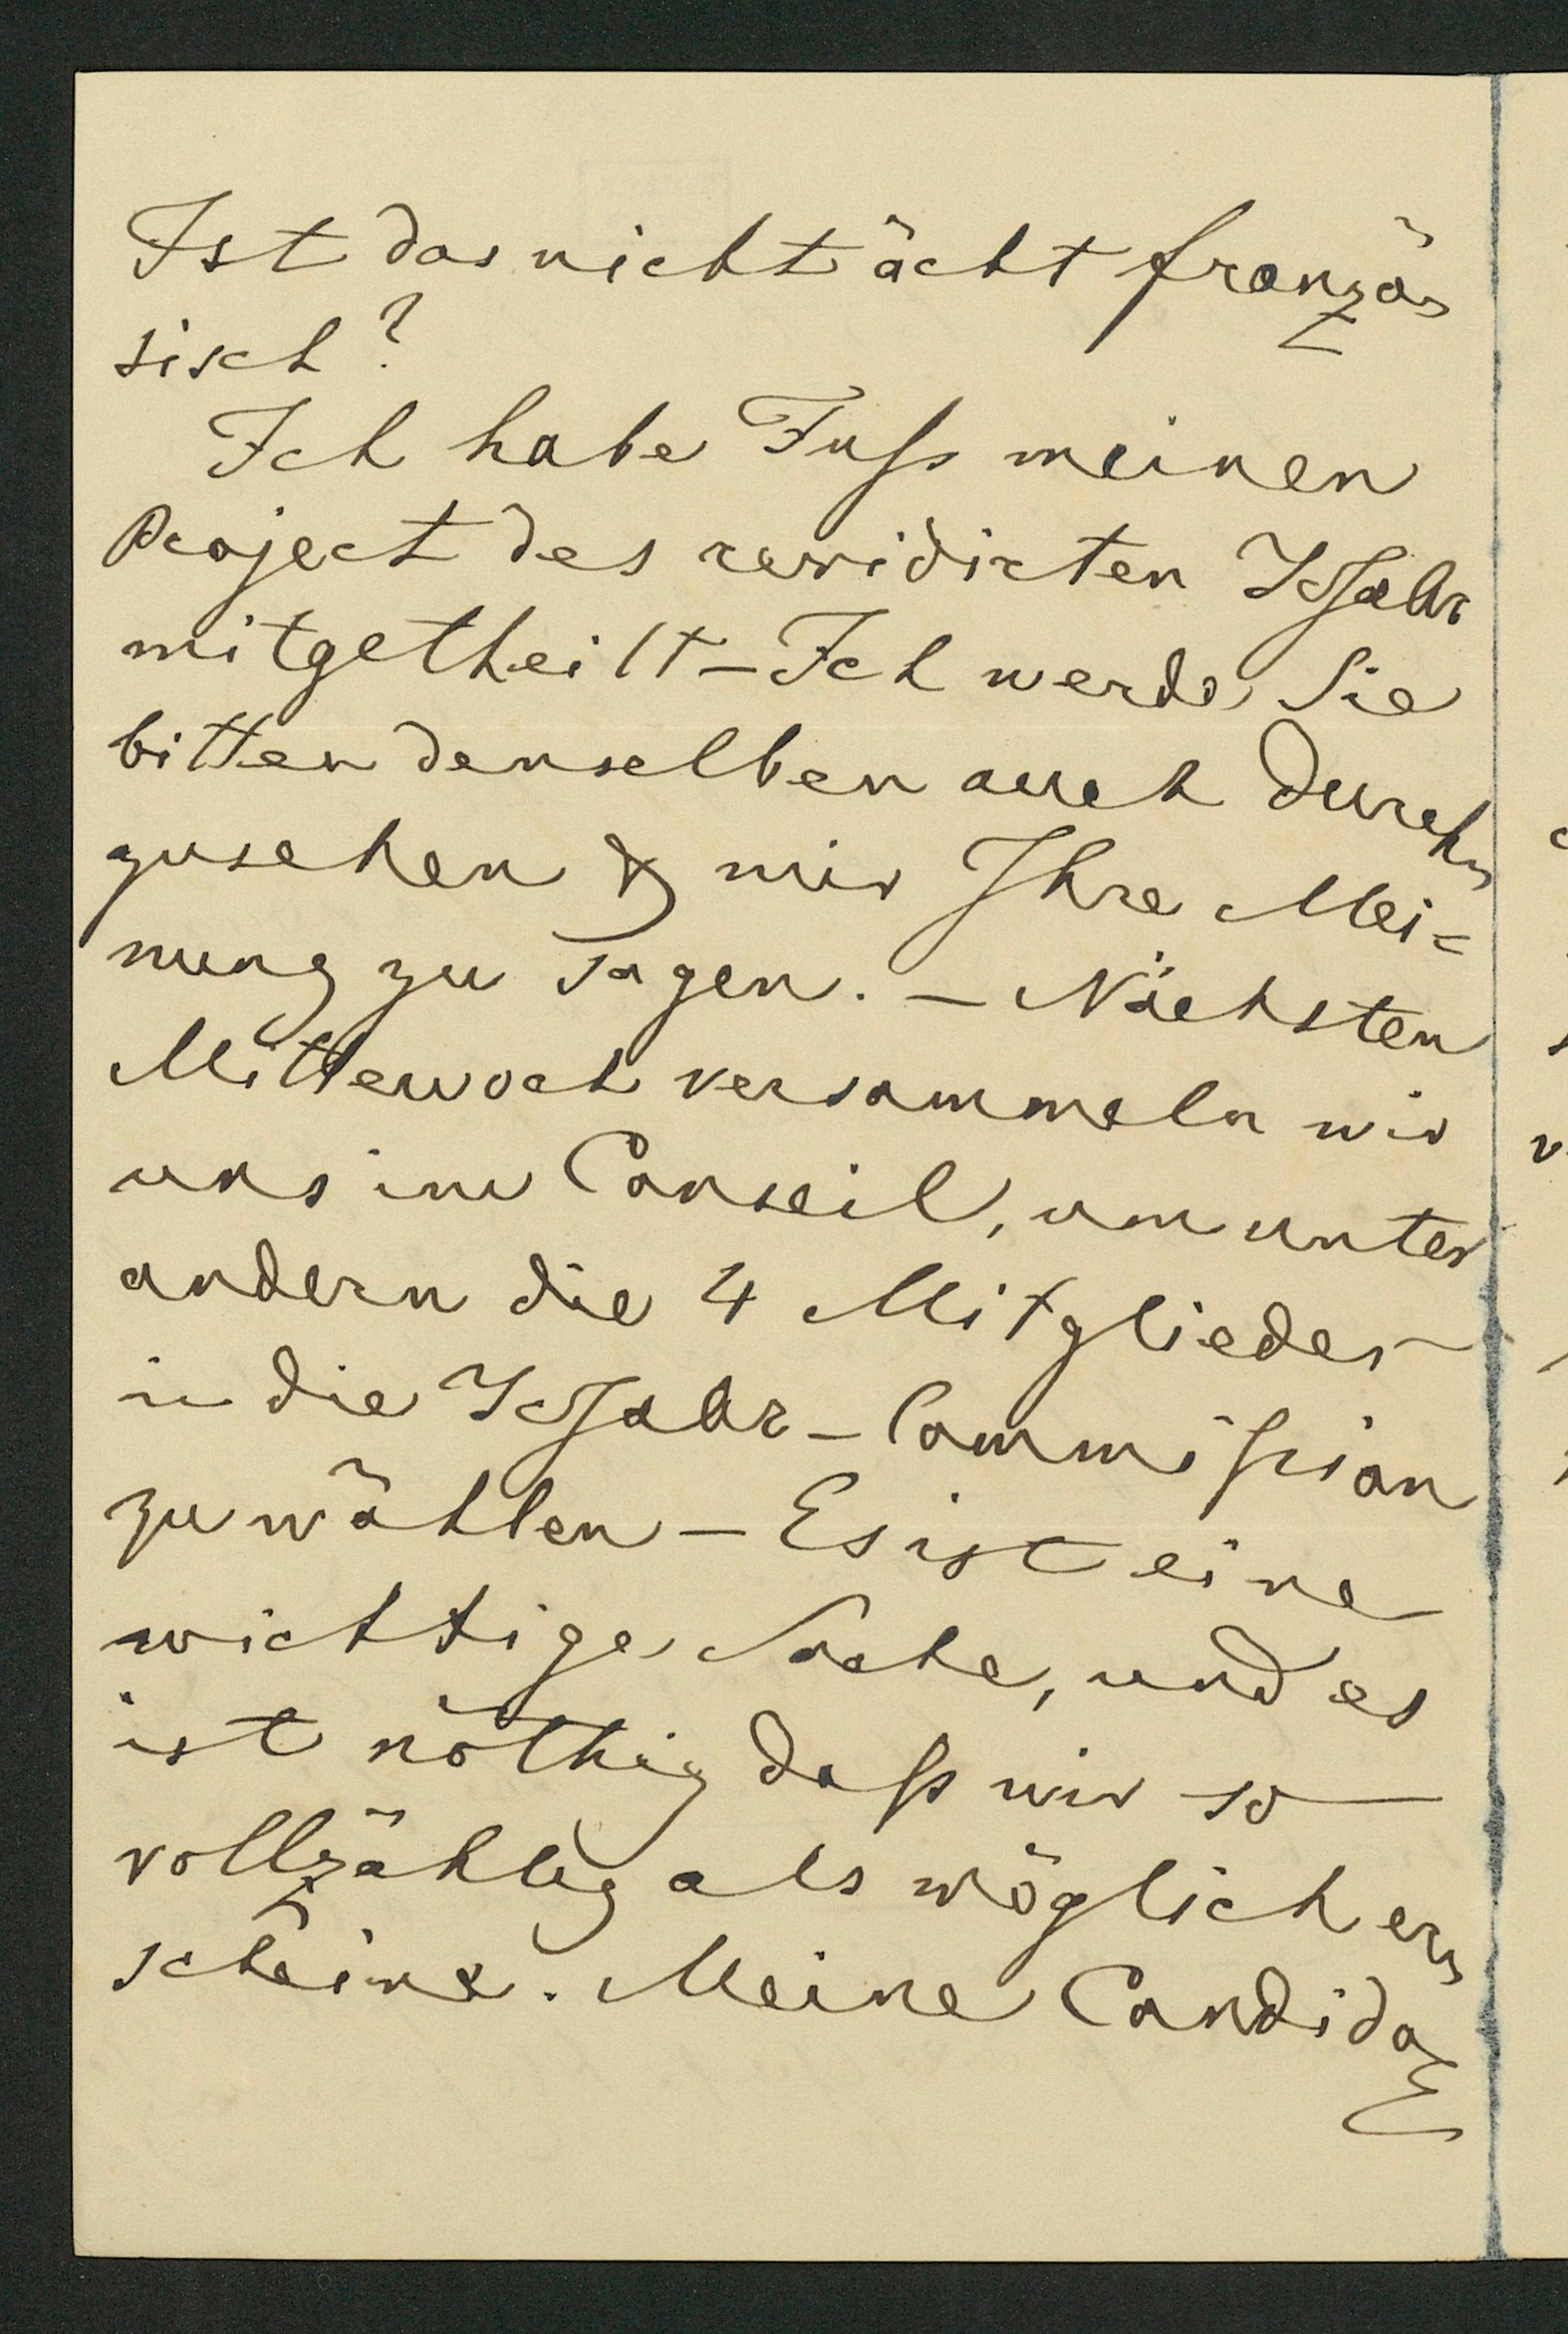 Ist das nicht ächt franzö=
sisch?
Ich habe Fuss meinen
Project des revidirten
mitgetheilt – Ich werde Sie
bitten denselben auch durch=
zusehen & mir Ihre Mei=
nung zu sagen. – Nächsten
Mittewoch versammeln wir
uns im Conseil, um unter
andern die 4 Mitglieder
in die Commission
zu wählen – Es ist eine
wichtige Sache, und es
ist nöthig dass wir so
vollzählig als möglich er=
scheine. Meine Candida=